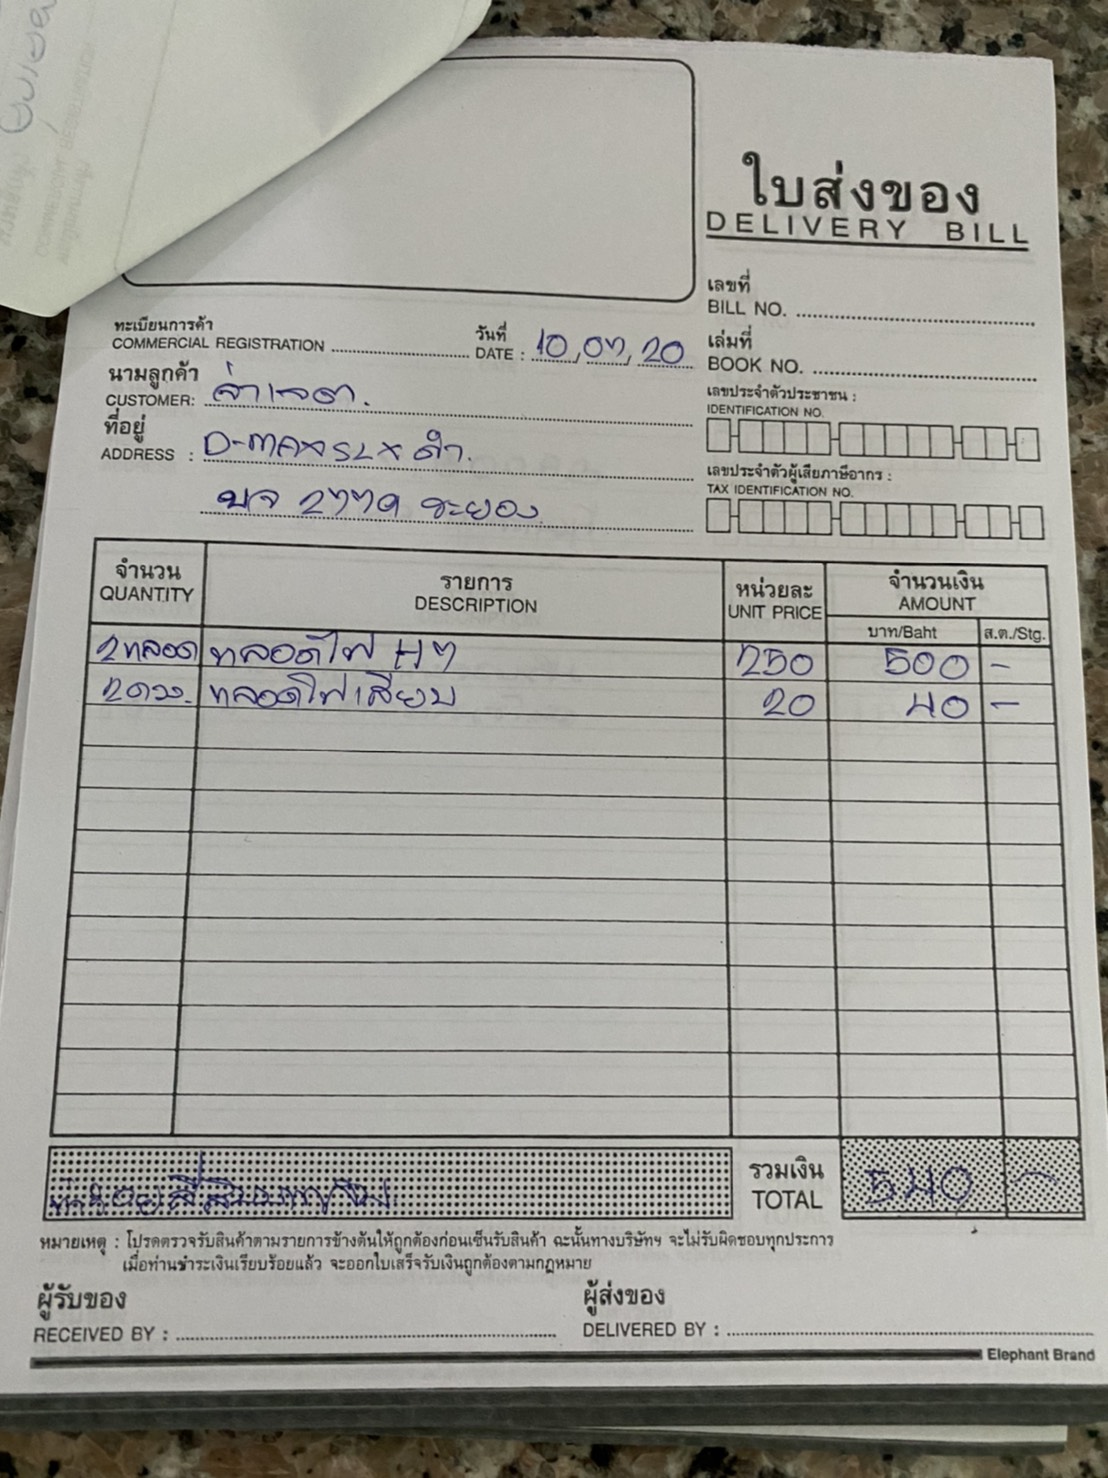 ใบส่งของ
DELIVERY BILL
เลขที่
BILL NO.
ทะเบียนการค้า
COMMERCIAL REGISTRATION
วันที่
DATE : 10,07,20
เล่มที่
BOOK NO.
นามลูกค้า
CUSTOMER:
เลขประจำตัวประชาชน :
IDENTIFICATION NO.
ที่อยู่
ADDRESS : D-MAX SLX ดำ.
เลขประจำตัวผู้เสียภาษีอากร :
TAX IDENTIFICATION NO.
ระยอง
จำนวน รายการ หน่วยละ จำนวนเงิน
QUANTITY DESCRIPTION UNIT PRICE AMOUNT
บาท/Baht ส.ต./Stg.
2หลอด หลอดไฟ H7 250 500 -
2ดวง. หลอดไฟเสียบ 20 40 -
รวมเงิน 540 -
TOTAL
ห้าร้อยสี่สิบบาทถ้วน
หมายเหตุ : โปรดตรวจรับสินค้าตามรายการข้างต้นให้ถูกต้องก่อนเซ็นรับสินค้า ฉะนั้นทางบริษัทฯ จะไม่รับผิดชอบทุกประการ
เมื่อท่านชำระเงินเรียบร้อยแล้ว จะออกใบเสร็จรับเงินถูกต้องตามกฎหมาย
ผู้รับของ ผู้ส่งของ
RECEIVED BY : DELIVERED BY :
Elephant Brand